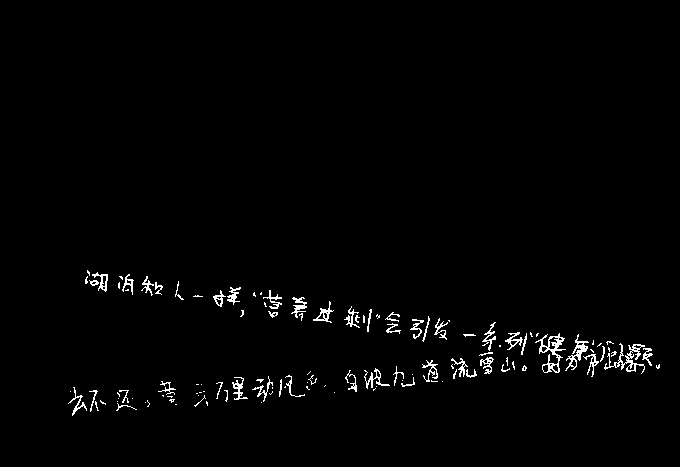 湖泊和人一样，“营养过剩”会引发一系列“健康问题
去不还。黄云万里动风色，白波九道流雪山。好为